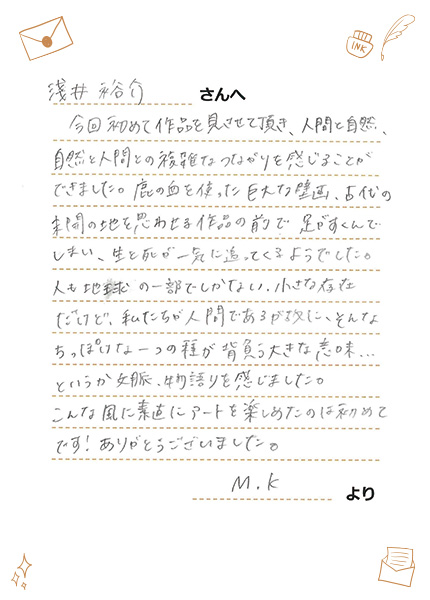 INK
浅井裕介 さんへ
今回初めて作品を見させて頂き、人間と自然、
自然と人間との複雑なつながりを感じることが
できました。鹿の血を使った巨大な壁画、古代の
未開の地を思わせる作品の前で 足がすくんで
しまい、生と死が一気に迫ってくるようでした。
人も地球の一部でしかない、小さな存在
だけど、私たちが人間であるが故に、そんな
ちっぽけな一つの種が背負う大きな意味…
というか文脈、物語りを感じました。
こんな風に素直にアートを楽しめたのは初めて
です！ありがとうございました。
M.K より